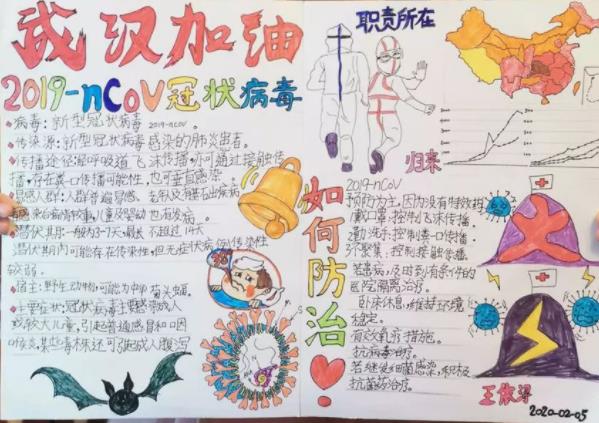 武汉加油
2019-nCoV冠状病毒
病毒：新型冠状病毒 2019-nCoV。
传染源：新型冠状病毒感染的肺炎患者。
传播途径：经呼吸道飞沫传播，亦可通过接触传
播，存在粪口传播可能性，也可垂直感染。
易感人群：人群普遍易感。老年人及有基础疾病
者感染后病情较重，儿童及婴幼也有发病。
潜伏期：一般为3-7天，最长不超过14天
潜伏期内可能存在传染性，但无症状病例传染性
较弱。
宿主：野生动物，可能为中华菊头蝠。
主要症状：冠状病毒主要感染成人
或较大儿童，引起普通感冒和咽
喉炎，某些毒株还可引起成人腹泻
职责所在
归来
如何防治！
2019-nCoV
预防为主，因为没有特效药
戴口罩：控制飞沫传播。
勤洗手：控制粪口传播。
不聚集：控制接触传播。
若患病，及时到有条件的
医院隔离治疗。
卧床休息，维持环境
稳定。
有效氧疗措施。
抗病毒治疗。
若继发细菌感染，积极
抗菌药治疗。
2020-02-05